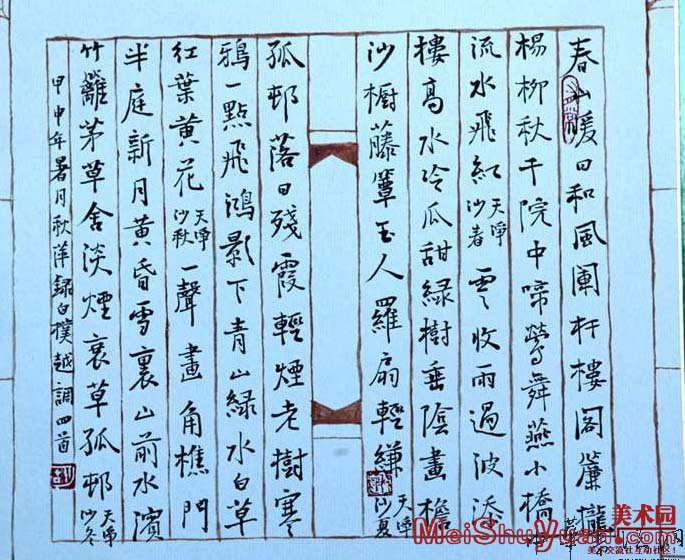 春山暖日和風闌杆樓閣簾櫳
楊柳秋千院中啼鶯舞燕小橋
流水飛紅天淨沙春雲收雨過波添
樓高水冷瓜甜綠樹垂陰畫檐
沙櫥藤簟玉人羅扇輕縑天淨沙夏
孤邨落日殘霞輕煙老樹寒
鴉一點飛鴻影下青山綠水白草
紅葉黃花天淨沙秋一聲畫角樵門
半庭新月黃昏雪裏山前水濱
竹籬茅草舍淡煙衰草孤邨天淨沙冬
甲申年暑月秋萍錄白樸越調四首
美术园
MeiShuYuan.com